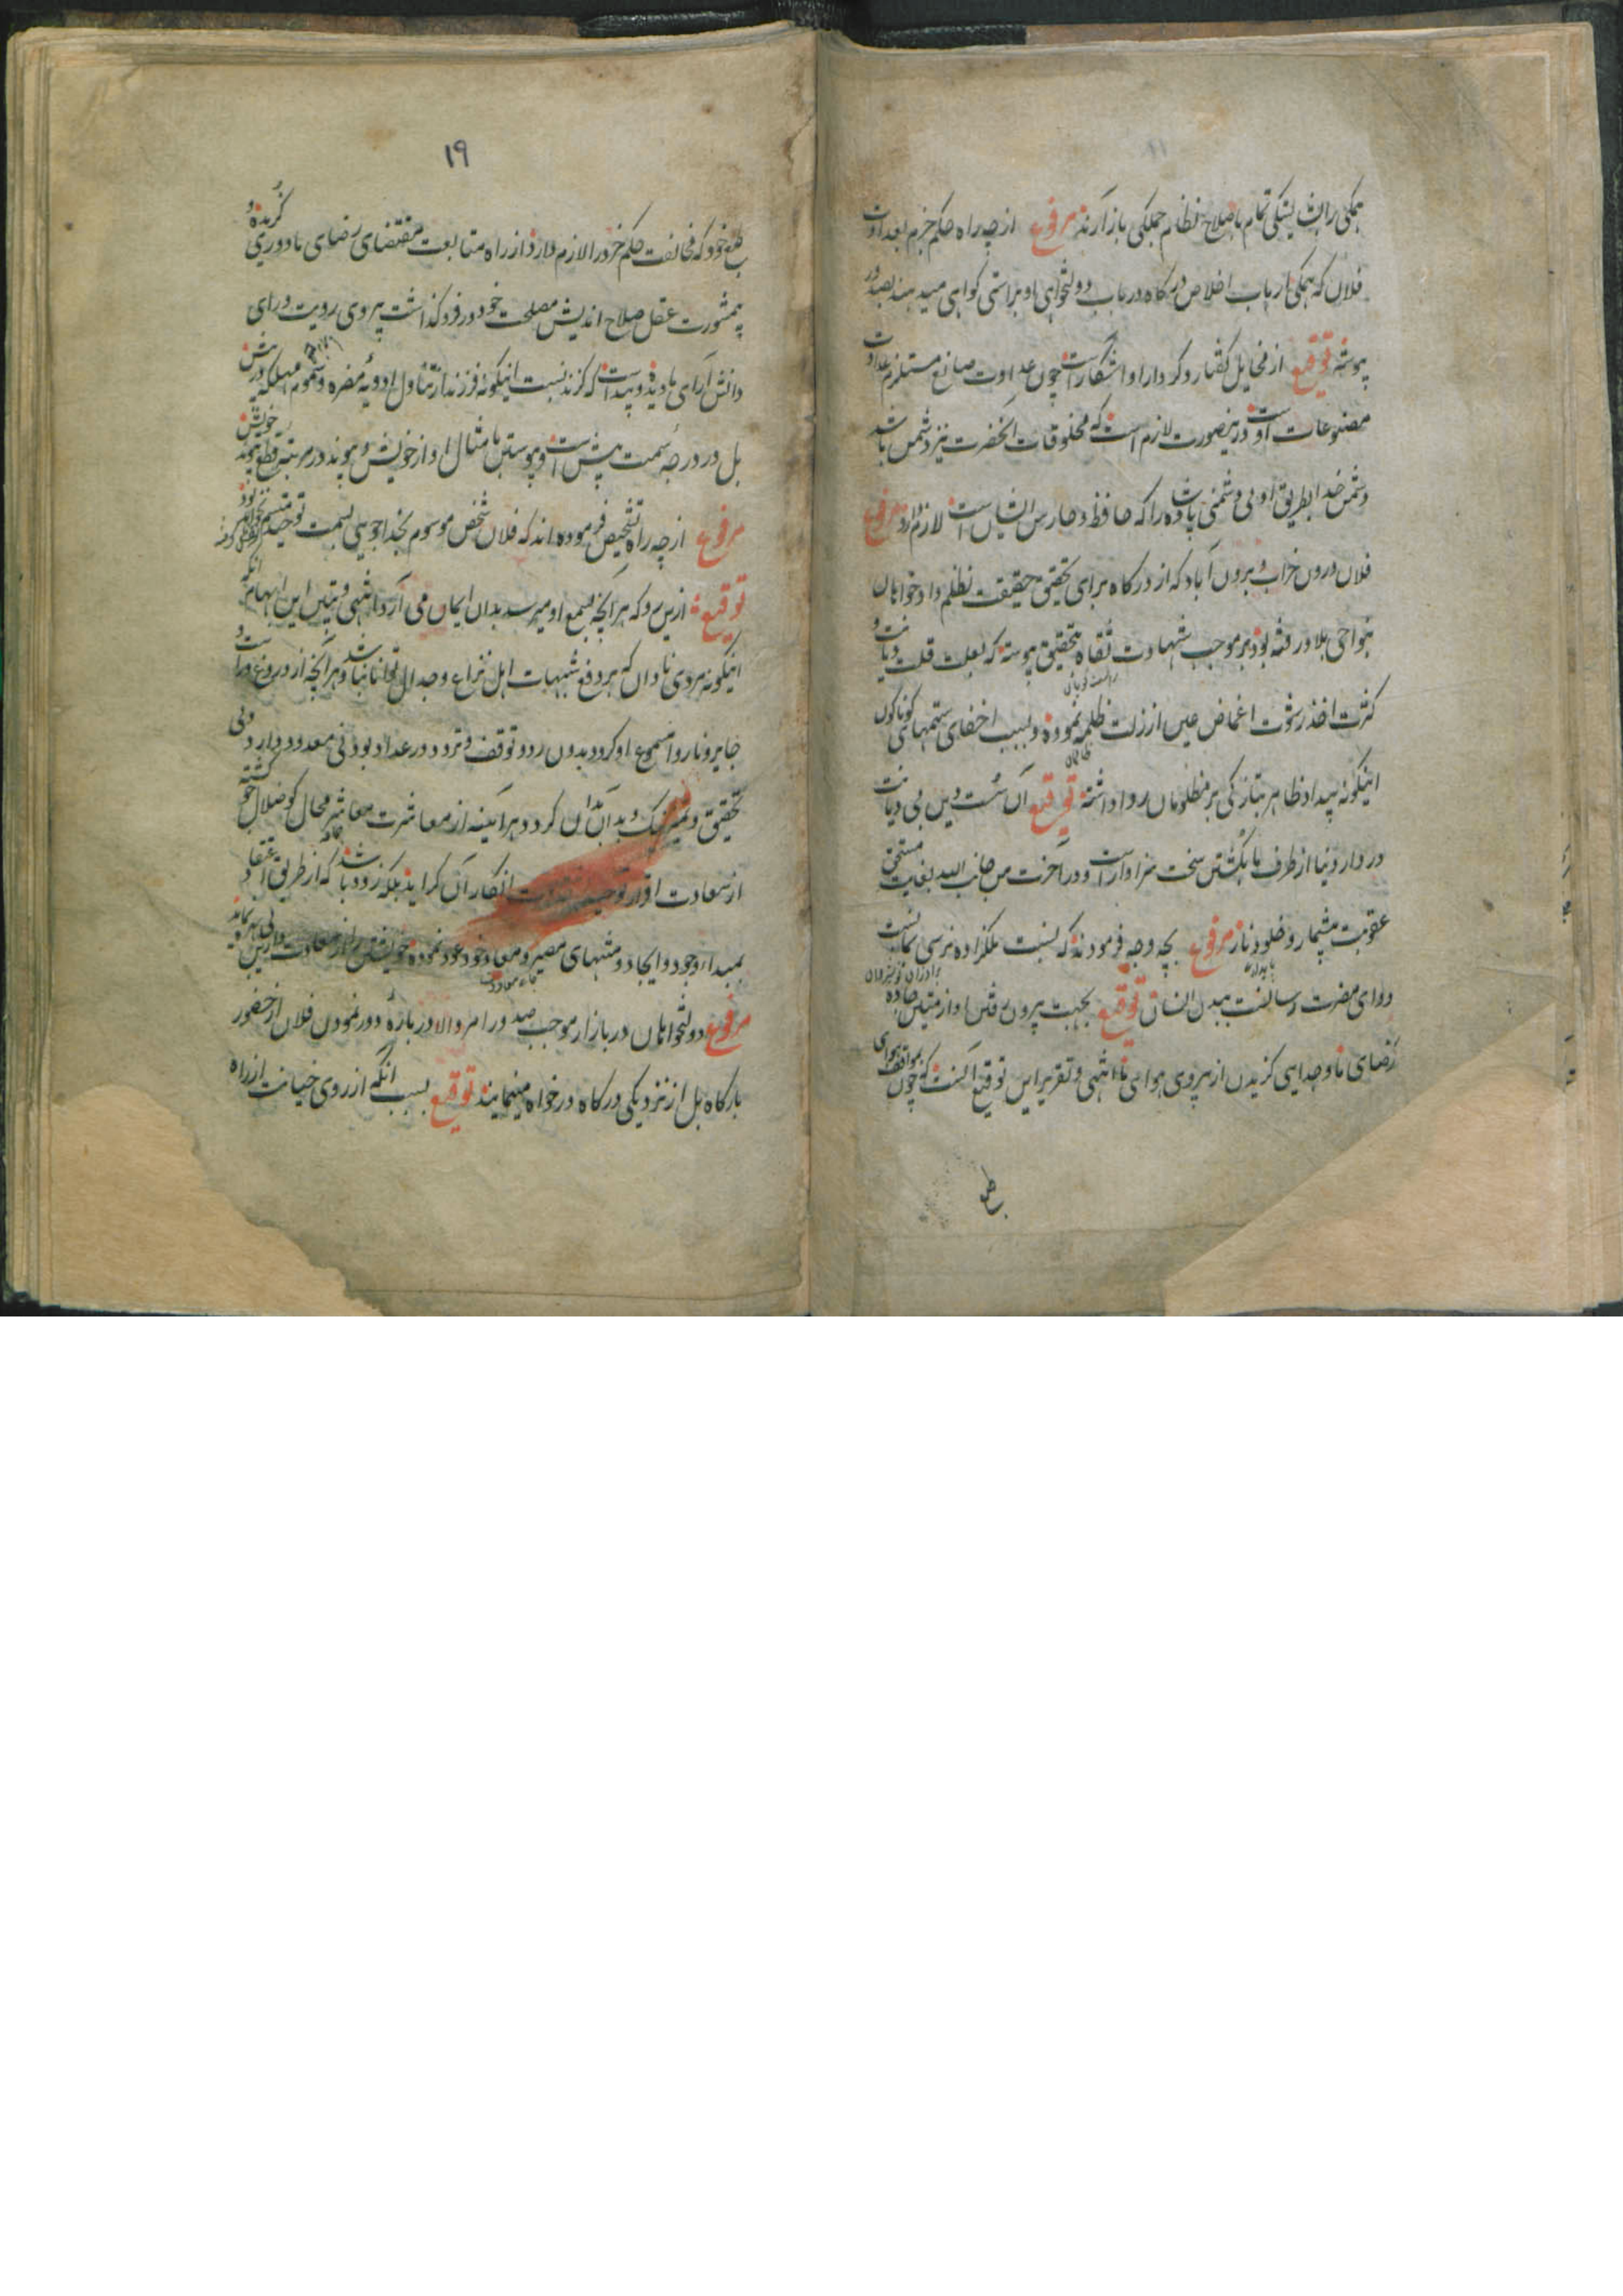 همکی را بشایستکی تمام باصلاح نظام جملکی باز آرند مرفوع از چه راه حکم جزم بعداوت
فلان که همکی ارباب اخلاص درکاه در باب دولتخواهی او براستی کواهی میدهند بصدور
پیوسته توقیع از مخایل کفتار و کردار او آشکار است چون عداوت صانع مستلزم عداوت
مصنوعات اوست درینصورت لازم است که مخلوقات آنحضرت نیز دشمن باشد
دشمن خدا بطریق اولی دشمنی پادشاه را که حافظ و حارس ایشان است لازم دارد مرفوع
فلان درون خراب و برون آباد که از درکاه برای تحقیق حقیقت تظلم داد خواهان
بنواحی بلاد رفته بود بر موجب شهادت ثقاه بتحقیق پیوسته که بعلت قلت دیانت و
کثرت اخذ رشوت اغماض عین از زلت ظلمه نموده و بسبب اخفای ستمهای کوناکون
اینکونه بیداد ظاهر بتازکی بر مظلومان روا داشته توقیع آن سست دین بی دیانت
در دار دنیا از طرف ما بکشتن سخت سزاوار است و در آخرت من جانب الله بغایت مستحق
عقوبت بیشمار و خلود نار مرفوع بچه وجه فرمودند که نسبت ملکزاده نرسی بما نسبت
دوای مضرت رسانست ببدن انسان توقیع بجهت بیرون رفتن او از متین جاده
رضای ما و جدایی کزیدن از پیروی هوای ما انتهی و تقریر این توقیع آنست که چون بموافقت هوای
طبع
۱۹
طبع خود که مخالفت حکم خرد را لازم دارد از راه متابعت مقتضای رضای ما دوری کزیده و
بمشورت عقل صلاح اندیش مصلحت خود در فرو کذاشت پیروی رویت و رای
دانش آرای ما دیده و پیداست که کزند نسبت اینکونه فرزند از تناول ادویه مضره و سموم مهلکه در پیش
بل در درجه سمت بیش است و پیوستن با مثال او از خویش و پیوند در مرتبه قطع پیوند خویش
مرفوع از چه راه تشخیص فرموده اند که فلان شخص موسوم بخداجویی بسمت توحید متسم نخواهد بود
توقیع ازین رو که هر آنچه بسمع او میرسد بدان ایمان می آرد انتهی و تبیین این ابهام آنکه
اینکونه مردی نادان که بر دفع شبهات اهل نزاع و جدال توانا نباشد و هر آنچه از دروغ و راست و
جایز و ناروا مسموع او کردد بدون رد و توقف و تردد در عداد بودنی معدود دارد و بی
تحقیق و تمیز نیک و بد بدان کردد هر آینه از معاشرت معاشر محال کو ضلال جو کشته
از سعادت اقرار توحید انکار آن کراید بلکه زود باشد که از طریق اعتقاد
بمبداء وجود و ایجاد و منتهای مصیر و معاد خود عود نموده خویشتن را از سعادت دارین
مرفوع دولتخواهان دربار از موجب صدور امر والا در باره دور نمودن فلان از حضور
بارکاه بل از نزدیکی درکاه درخواه مینمایند توقیع بسبب آنکه از روی خیانت از راه